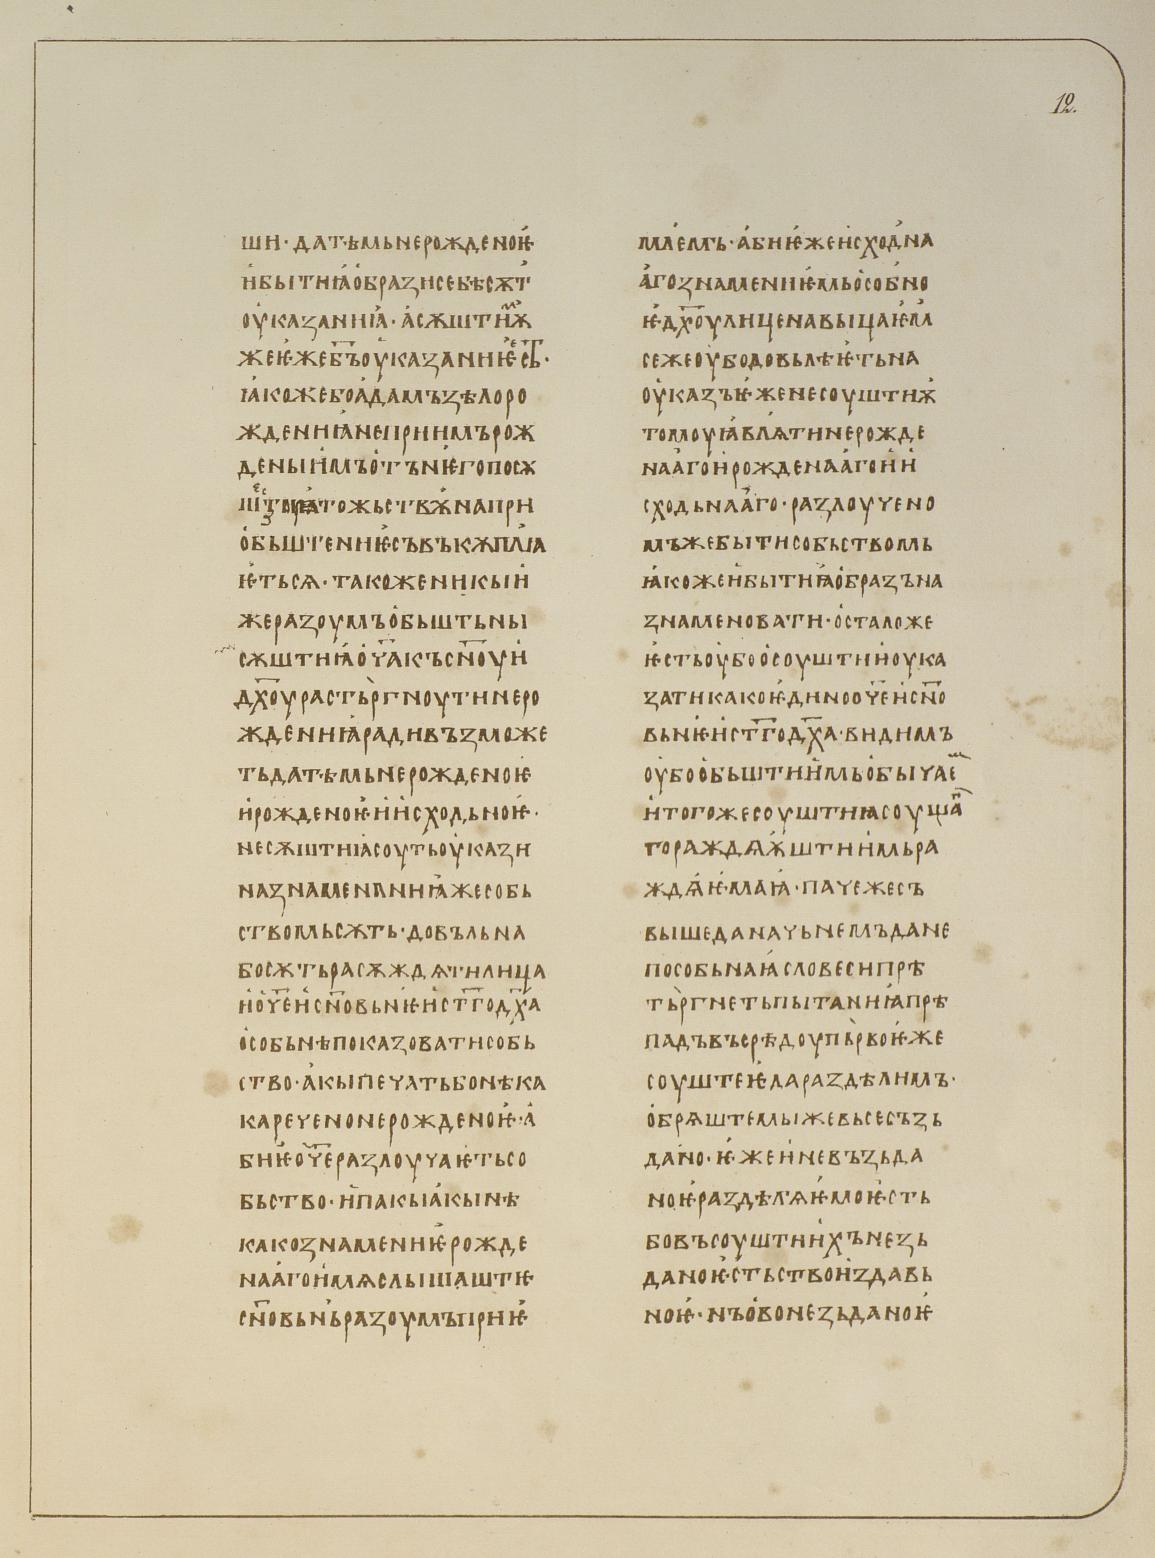 12.
ши· датѣмьнерожденоѥ
ибытиꙗобразисебѣсѫт
оуказаниꙗ· асѫштиꙗ
жеѥжебъоуказаниѥсь·
ꙗкожебоадамъꙁѣлоро
ждениꙗнеприимърож
деныимъотънѥгопосѫ
тожьствѫнапри
обьштениѥсъвъкѫплꙗ
ѥтьсѧ· такоженикыи
жеразоумъобьштьны
сѫштиꙗоч҃акъсн҃оуи
дх҃оурастьргноутинеро
ждениꙗрадивъзможе
тьдатѣмьнерожденоѥ
ирожденоѥиисходьноѥ·
несѫштиꙗсоутьоукази
назнамениꙗжесобь
ствомьсѫть· довъльна
босѫтьрасѫждѧтилица
иоч҃еисн҃овьнѥист҃годх҃а
особьнѣпоказоватисобь
ство· акыпечатьбонѣка
каречнонерожденоѥ· а
биѥоч҃еразлоучаѥтьсо
бьство· ипакыакынѣ
какознамениѥрожде
наагоимѧслышаште
сн҃овьньразоумъприѥ
млемъ· абиѥжеисходьна
агознамениѥмьособно
ѥ· дх҃оулиценавыцаѥм
сежеоубодовьлѣѥтьна
оуказъѥженесоуштиѫ
томоуꙗвлѧтинерожде
наагоирожденаагоии
сходьнааго· разлоучено
мъжебытисобьствомь
ꙗкожеибытиꙗобразъна
знаменовати· осталоже
ѥстьоубоосоуштииоука
затикакоѥдинооч҃еисн҃о
вьнѥист҃годх҃а· видимъ
оубообьштиимьобычае
итогожесоуштиꙗсоуща
тораждаѫштиимьра
ждаѥмаꙗ· пачежесъ
вышеданачьнемъдане
пособьнаꙗсловесипрѣ
тьргнетьпытаниꙗпрѣ
падъвъсрѣдоупьрвоѥже
соуштеѥдараздѣлимъ·
обрѧштемыжевьсесъзь
дано· ѥжеиневъзьда
ноѥраздѣлꙗѥмоѥсть
бовъсоуштиихънезь
даноѥстьствоиздавь
ноѥ· нъовонезьданоѥ